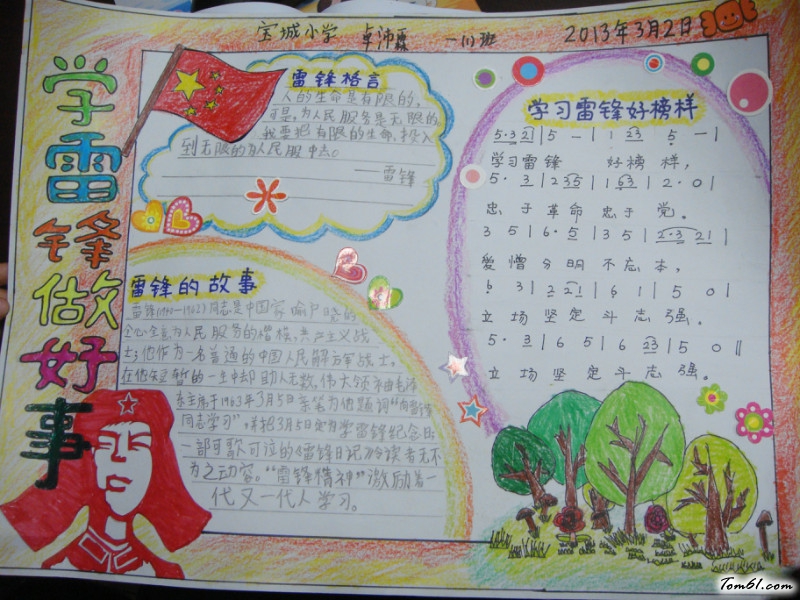 宝城小学 卓沛霖 一(1)班 2013年3月2日
学雷锋做好事
雷锋格言
人的生命是有限的,
可是,为人民服务是无限的
我要把有限的生命,投入
到无限的为人民服中去。
——雷锋
雷锋的故事
雷锋(1940—1962)同志是中国家喻户晓的
全心全意为人民服务的楷模,共产主义战
士;他作为一名普通的中国人民解放军战士,
在他短暂的一生中却助人无数,伟大领袖毛泽
东主席于1963年3月5日亲笔为他题词“向雷锋
同志学习”,并把3月5日定为学雷锋纪念日;
一部可歌可泣的《雷锋日记》令读者无不
为之动容。“雷锋精神”激励着一
代又一代人学习。
学习雷锋好榜样
5·3 2 1 | 5 — | 1 2 3 5 — |
学习雷锋 好榜样,
5· 3 | 2 3 5 | 1 6 3 | 2 · 0 |
忠于革命忠于党。
3 5 | 6· 5 | 3 5 | 2·3 2 1 |
爱憎分明不忘本,
6 3 | 2 2 1 | 6 1 | 5 0 |
立场坚定斗志强。
5· 3 | 6 5 | 6 2 3 | 5 0 ‖
立场坚定斗志强。
Tom61.com